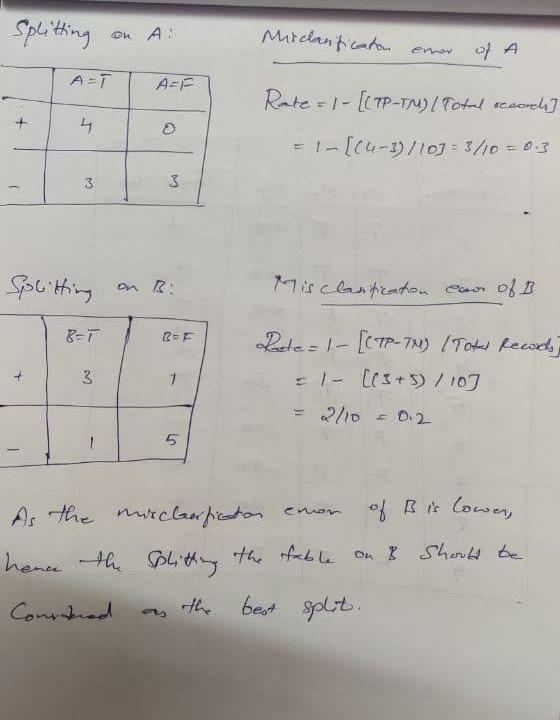 Splitting on A:
Misclassification error of A
A=T A=F
+ 4 0
- 3 3
Rate = 1 - [(TP-TN) / Total records]
= 1 - [(4-3)/10] = 3/10 = 0.3
Splitting on B:
Misclassification error of B
B=T B=F
+ 3 1
- 1 5
Rate = 1 - [(TP-TN) / Total Records]
= 1 - [(3+5) / 10]
= 2/10 = 0.2
As the misclassification error of B is lower,
hence the splitting the table on B should be
Considered as the best split.